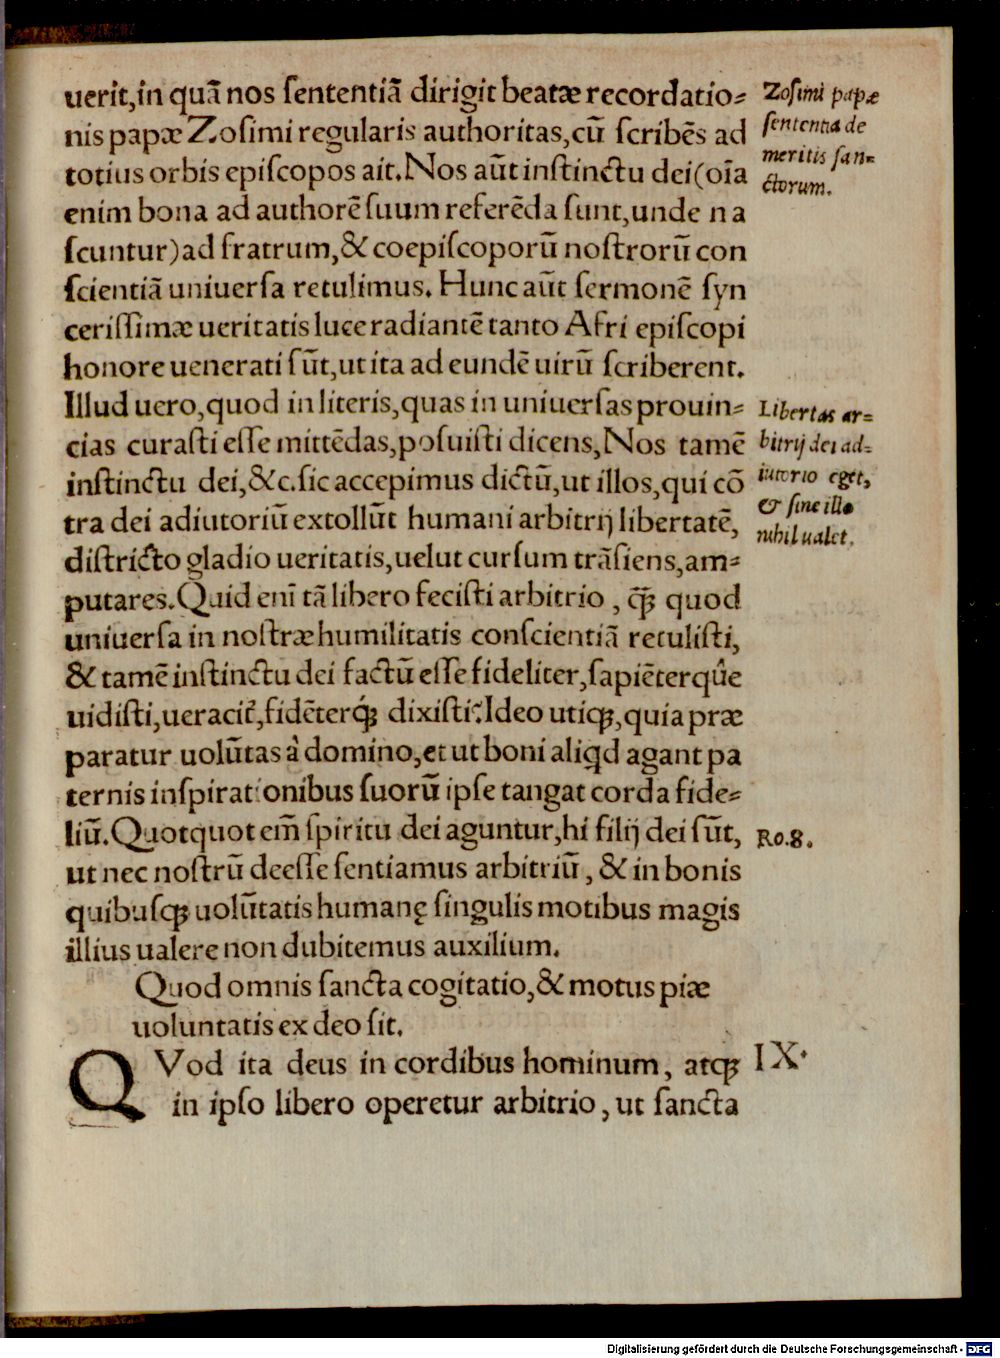 uerit,in quā nos ſententiā dirigit beatæ recordatio⸗
nis papæ Zoſimi regularis authoritas,cū ſcribēs ad
totius orbis epiſcopos ait.Nos aūt inſtinctu dei(oīa
enim bona ad authorē ſuum referēda ſunt,unde na
ſcuntur)ad fratrum,& coepiſcoporū noſtrorū con
ſcientiā uniuerſa retulimus. Hunc aūt ſermonē ſyn
ceriſſimæ ueritatis luce radiantē tanto Afri epiſcopi
honore uenerati sūt,ut ita ad eundē uirū ſcriberent.
Illud uero,quod in literis,quas in uniuerſas prouin⸗
cias curaſti eſſe mittēdas,poſuiſti dicens,Nos tamē
inſtinctu dei,&c.ſic accepimus dictū,ut illos,qui cō
tra dei adiutoriū extollūt humani arbitrij libertatē,
diſtricto gladio ueritatis,uelut curſum trāſiens,am⸗
putares.Quid enī tā libero feciſti arbitrio , q̄ꝫ quod
uniuerſa in noſtræ humilitatis conſcientiā retuliſti,
& tamē inſtinctu dei factū eſſe fideliter,ſapiēterqûe
uidiſti,ueracit̉,fidēterq́ꝫ dixiſti?Ideo utiqꝫ,quia præ
paratur uolūtas à domino,et ut boni aliqd agant pa
ternis inſpirationibus ſuorū ipſe tangat corda fide⸗
liū.Quotquot em̄ ſpiritu dei aguntur,hi filij dei sūt,
ut nec noſtrū deeſſe ſentiamus arbitriū, & in bonis
quibuſqꝫ uolūtatis humanę ſingulis motibus magis
illius ualere non dubitemus auxilium.
Quod omnis ſancta cogitatio,& motus piæ
uoluntatis ex deo ſit.
QVod ita deus in cordibus hominum, atqꝫ
in ipſo libero operetur arbitrio, ut ſancta
Zoſimi papæ
ſententia de
meritis ſan⸗
ctorum.
Libertas ar⸗
bitrij dei ad⸗
iutorio eget,
& ſine illo
nihil ualet.
Ro.8.
IX.
Digitalisierung gefördert durch die Deutsche Forschungsgemeinschaft - DFG